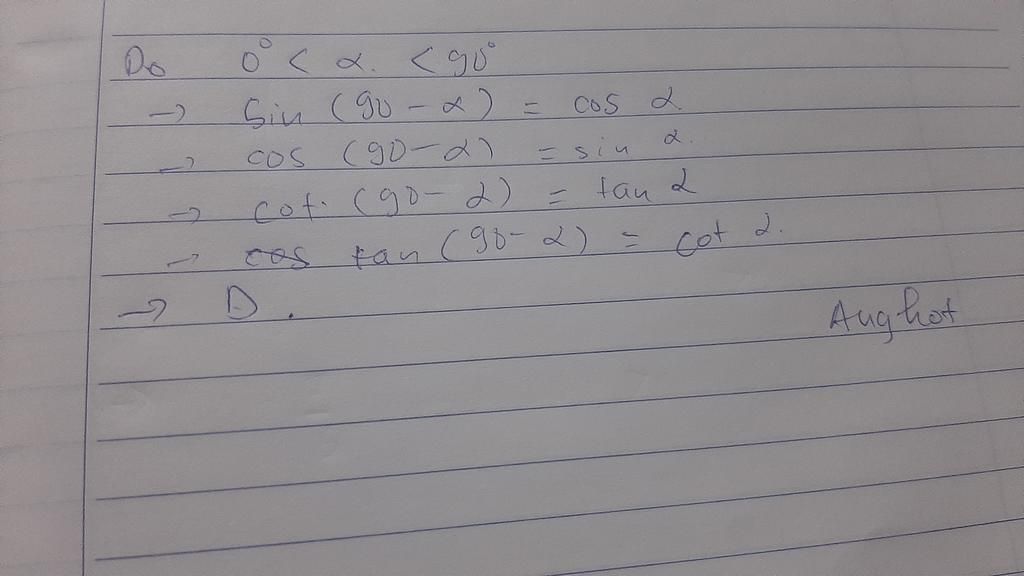 Do 0° < α. < 90°
→ Sin (90 - α) = cos α
→ cos (90 - α) = sin α.
→ cot. (90 - α) = tan α
→ cos tan (90 - α) = cot α.
→ D.
Aughot